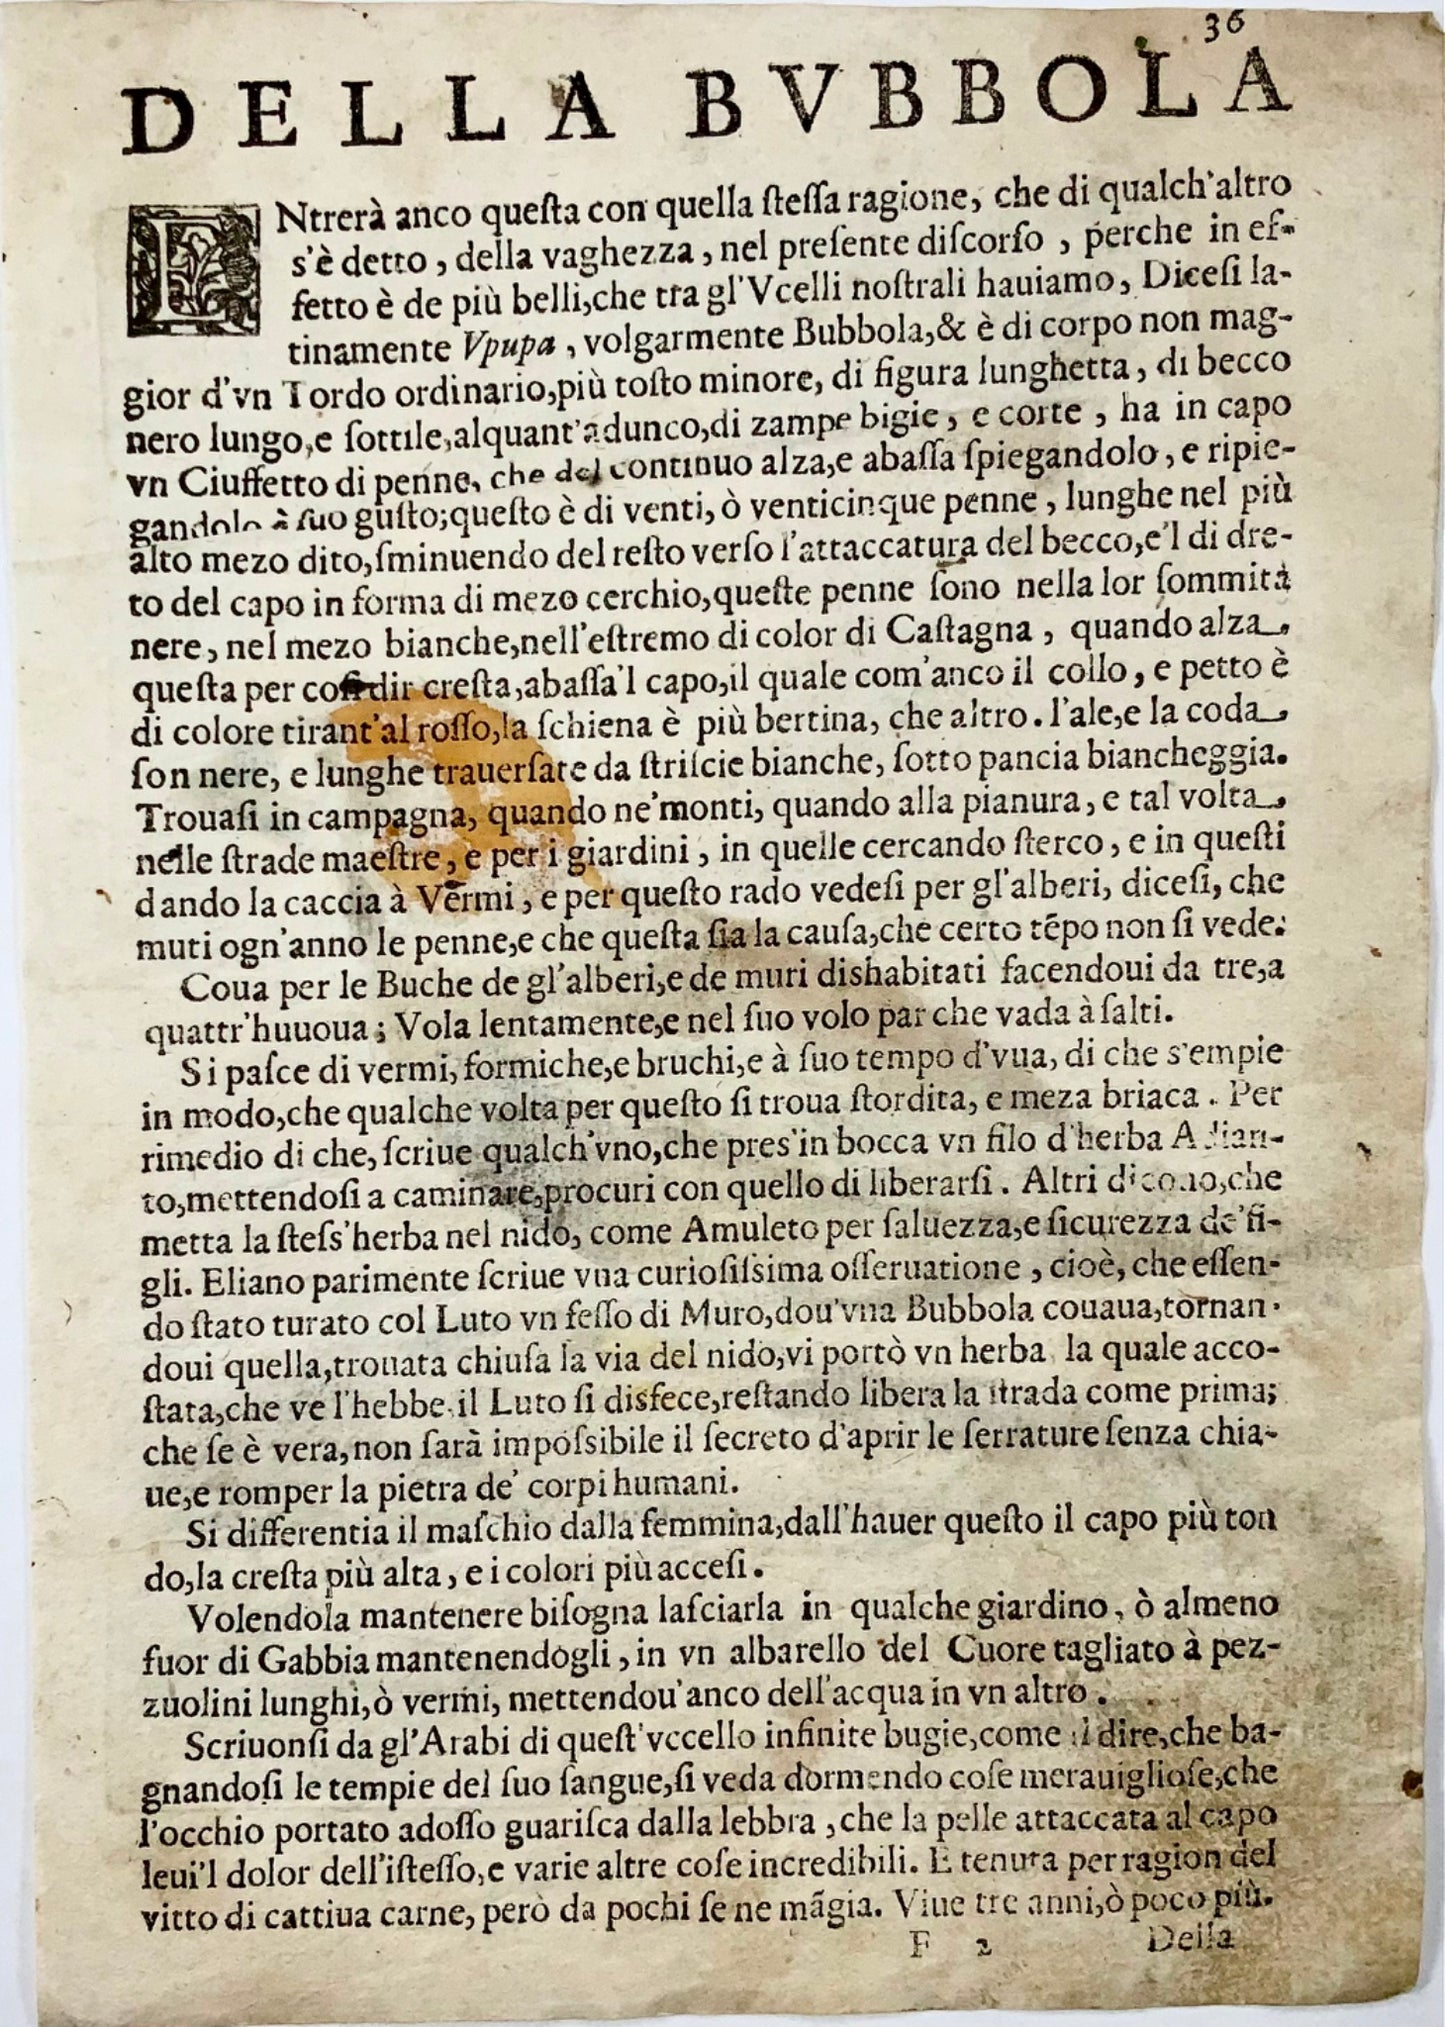 36
DELLA BVBBOLA
ENtrerà anco queſta con quella ſteſſa ragione, che di qualch'altro
s'è detto, della vaghezza, nel preſente diſcorſo, perche in ef-
fetto è de più belli, che tra gl'Vcelli noſtrali hauiamo, Diceſi la-
tinamente Vpupa, volgarmente Bubbola, & è di corpo non mag-
gior d'vn Tordo ordinario, più toſto minore, di figura lunghetta, di becco
nero lungo, e ſottile, alquant'adunco, di zampe bigie, e corte, ha in capo
vn Ciuffetto di penne, che del continuo alza, e abaſſa ſpiegandolo, e ripie-
gandolo à ſuo guſto; queſto è di venti, ò venticinque penne, lunghe nel più
alto mezo dito, ſminuendo del reſto verſo l'attaccatura del becco, e'l di dre-
to del capo in forma di mezo cerchio, queſte penne ſono nella lor ſommità
nere, nel mezo bianche, nell'eſtremo di color di Caſtagna, quando alza
queſta per coſi dir creſta, abaſſa'l capo, il quale com'anco il collo, e petto è
di colore tirant'al roſſo, la ſchiena è più bertina, che altro. l'ale, e la coda
ſon nere, e lunghe trauerſate da ſtriſcie bianche, ſotto pancia biancheggia.
Trouaſi in campagna, quando ne'monti, quando alla pianura, e tal volta
nelle ſtrade maeſtre, e per i giardini, in quelle cercando ſterco, e in queſti
dando la caccia à Vermi, e per queſto rado vedeſi per gl'alberi, diceſi, che
muti ogn'anno le penne, e che queſta ſia la cauſa, che certo tẽpo non ſi vede:
Coua per le Buche de gl'alberi, e de muri dishabitati facendoui da tre, a
quattr'huuoua; Vola lentamente, e nel ſuo volo par che vada à ſalti.
Si paſce di vermi, formiche, e bruchi, e à ſuo tempo d'vua, di che s'empie
in modo, che qualche volta per queſto ſi troua ſtordita, e meza briaca. Per
rimedio di che, ſcriue qualch'vno, che pres'in bocca vn filo d'herba Adian-
to, mettendoſi a caminare, procuri con quello di liberarſi. Altri dicono, che
metta la ſteſs'herba nel nido, come Amuleto per ſaluezza, e ſicurezza de'fi-
gli. Eliano parimente ſcriue vna curioſiſsima oſſeruatione, cioè, che eſſen-
do ſtato turato col Luto vn feſſo di Muro, dou'vna Bubbola couaua, tornan-
doui quella, trouata chiuſa la via del nido, vi portò vn herba la quale acco-
ſtata, che ve l'hebbe, il Luto ſi disfece, reſtando libera la ſtrada come prima;
che ſe è vera, non ſarà impoſsibile il ſecreto d'aprir le ſerrature ſenza chia-
ue, e romper la pietra de' corpi humani.
Si differentia il maſchio dalla femmina, dall'hauer queſto il capo più ton
do, la creſta più alta, e i colori più acceſi.
Volendola mantenere biſogna laſciarla in qualche giardino, ò almeno
fuor di Gabbia mantenendogli, in vn albarello del Cuore tagliato à pez-
zuolini lunghi, ò vermi, mettendou'anco dell'acqua in vn altro.
Scriuonſi da gl'Arabi di queſt'vccello infinite bugie, come il dire, che ba-
gnandoſi le tempie del ſuo ſangue, ſi veda dormendo coſe merauiglioſe, che
l'occhio portato adoſſo guariſca dalla lebbra, che la pelle attaccata al capo
leui'l dolor dell'iſteſſo, e varie altre coſe incredibili. E tenuta per ragion del
vitto di cattiua carne, però da pochi ſe ne mãgia. Viue tre anni, ò poco più.
F 2 Della